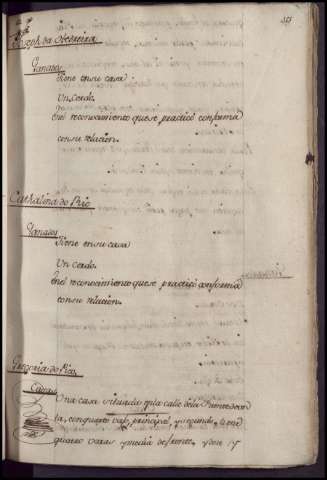 Joseph da Obeureira
Ganados
Tiene en su casa
Un Cerdo.
En el reconocimiento que se practicó conforma
con su relacion.
Cathalina do Rio
Ganados
Tiene en su casa
Un Cerdo.
En el reconocimiento que se practicó conforma
con su relacion.
Gregoria do Rio
Casas
Una casa situada en la calle de la
ta, con quarto vajo, principal, y segundo, tiene
quatro varas y media de frente, y